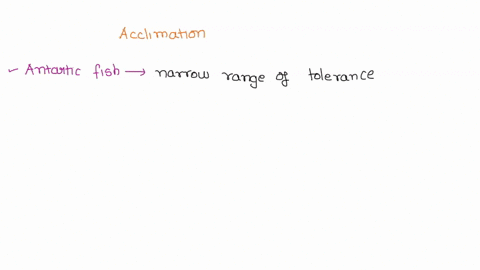 Acclimation
- Antartic fish → narrow range of tolerance